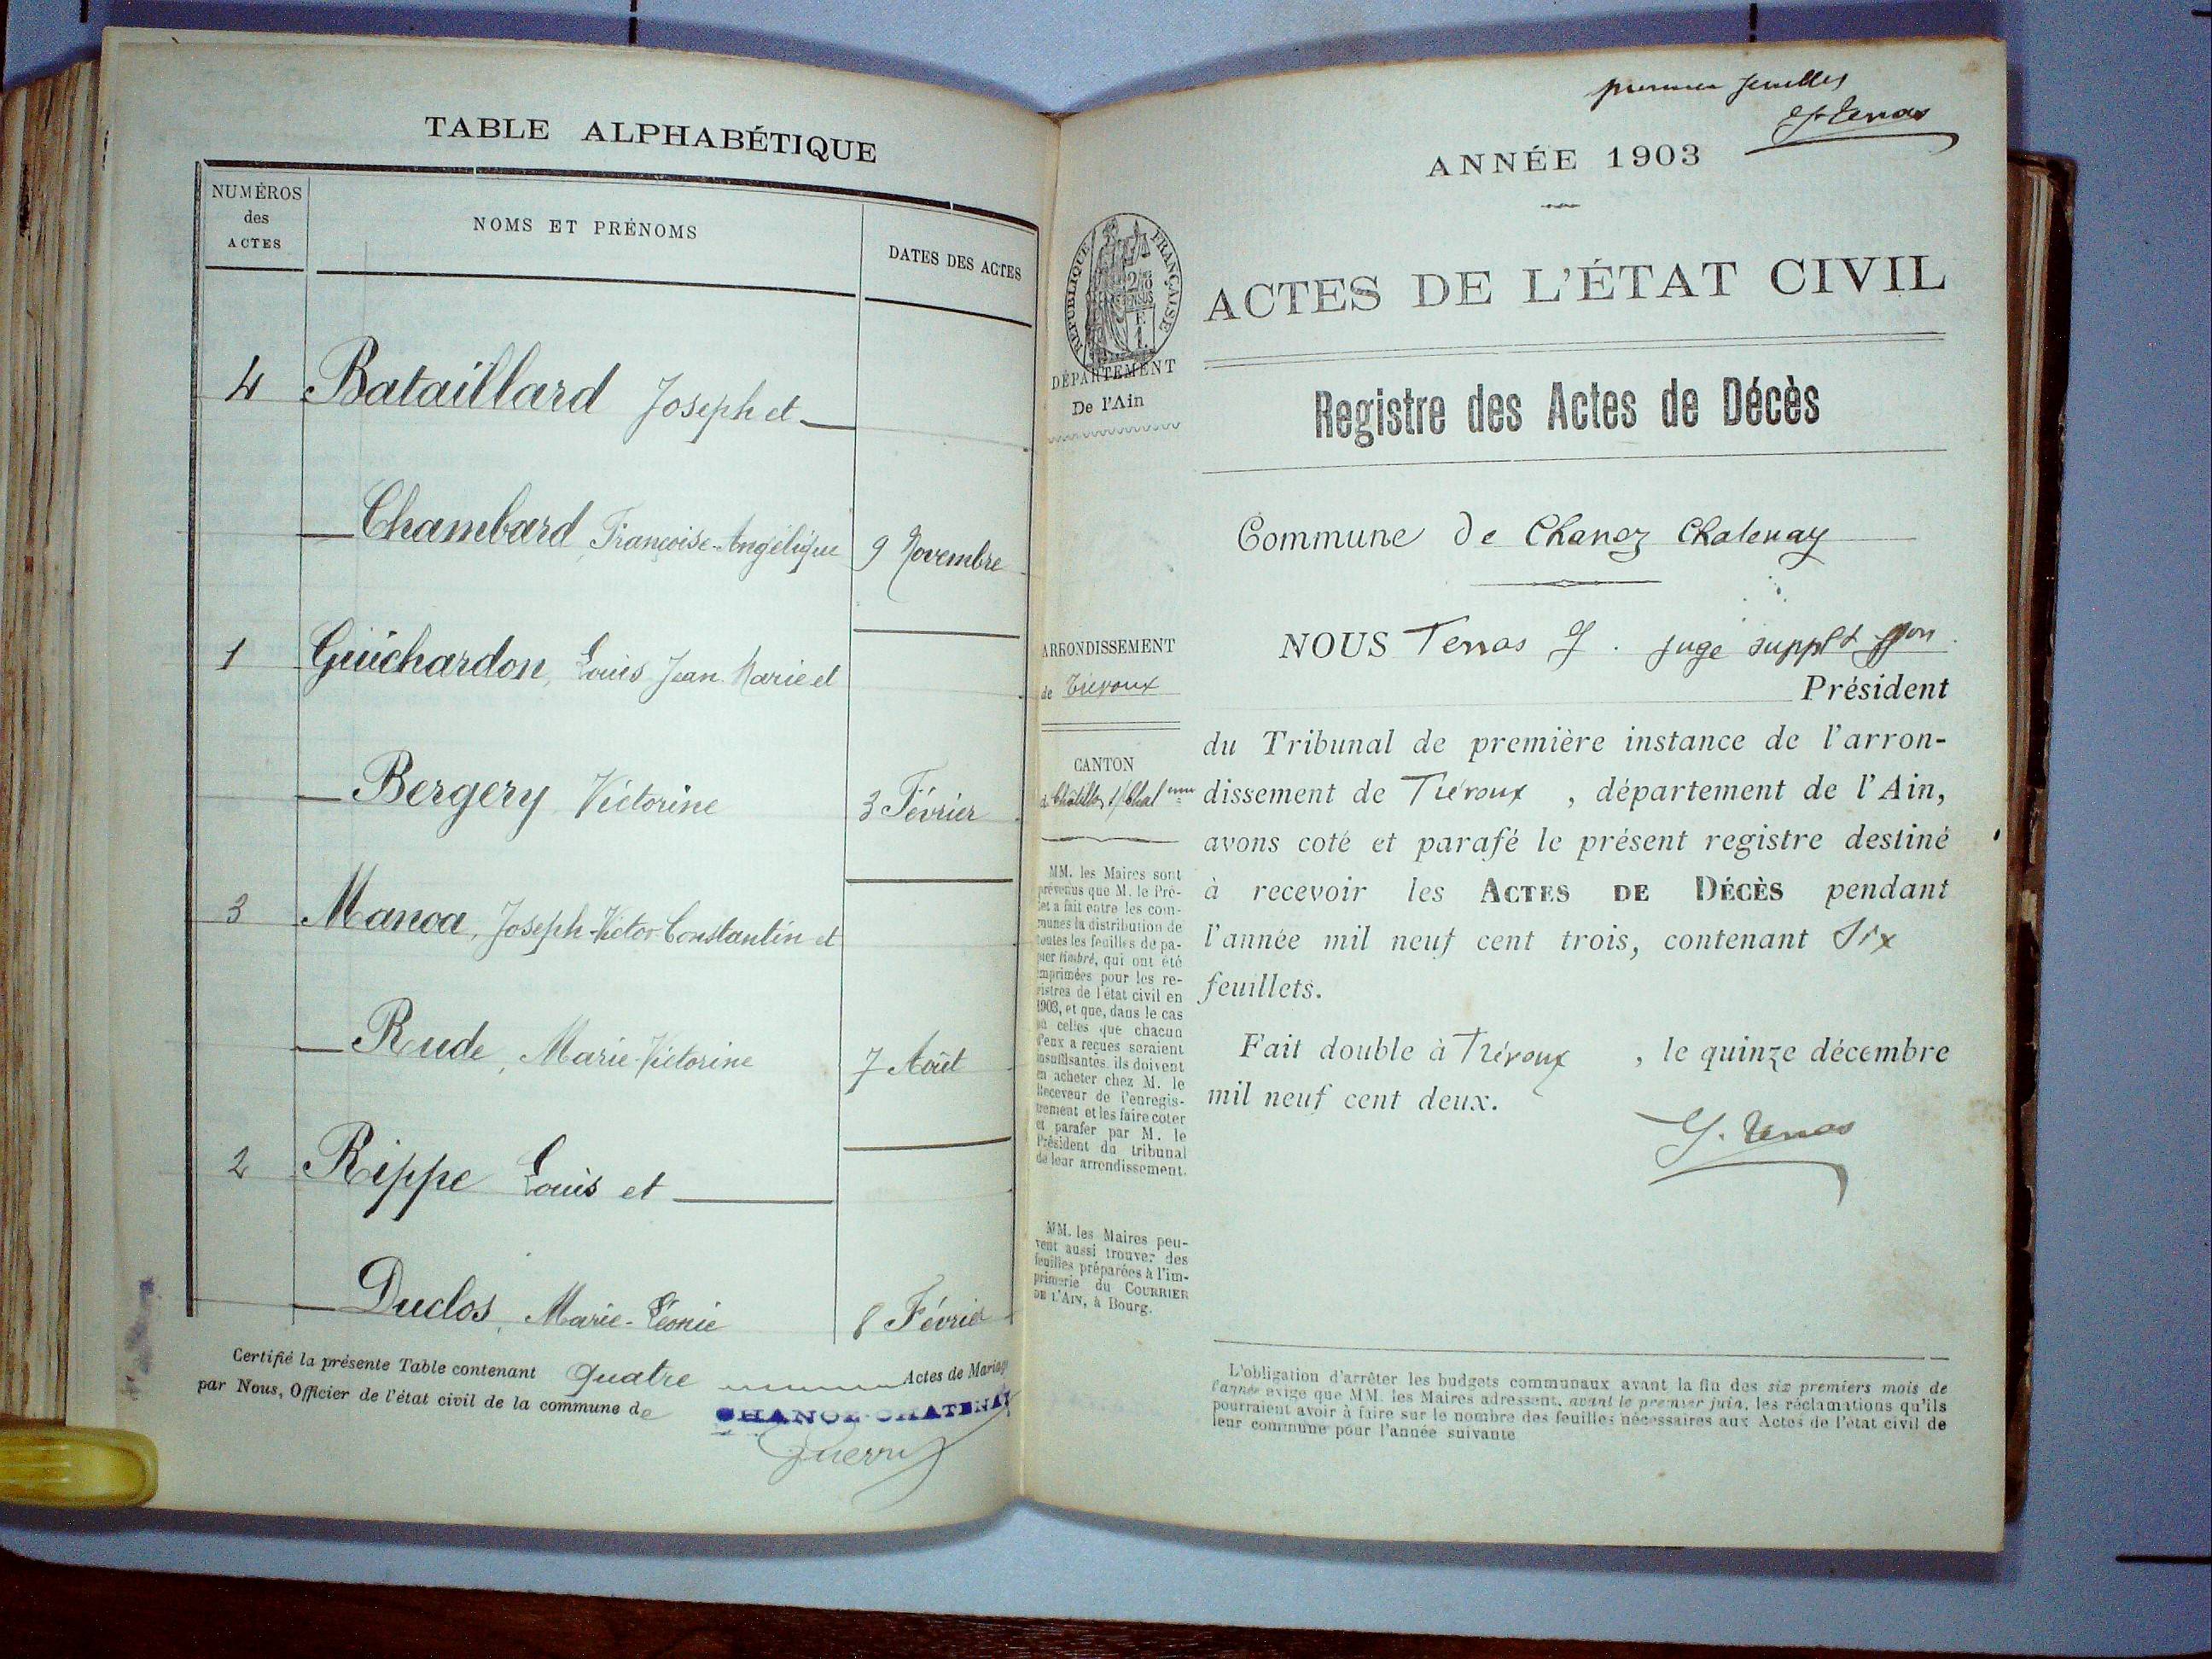 TABLE ALPHABÉTIQUE
NUMÉROS
des
ACTES
NOMS ET PRÉNOMS
DATES DES ACTES
4 Bataillard Joseph et
Chambard Françoise-Angélique 9 Novembre
1 Guichardon, Louis Jean Marie et
Bergery Victorine 3 Février
3 Manoa, Joseph-Victor-Constantin et
Rude, Marie-Victorine 7 Août
2 Rippe Louis et
Duclos, Marie-Léonie 8 Février
Certifié la présente Table contenant quatre Actes de Mariage
par Nous, Officier de l'état civil de la commune de CHANOZ-CHATENAY
premier feuillet
ANNÉE 1903
RÉPUBLIQUE FRANÇAISE
ACTES DE L'ÉTAT CIVIL
DÉPARTEMENT
De l'Ain
Registre des Actes de Décès
Commune de Chanoz Chatenay
ARRONDISSEMENT
de Trévoux
CANTON
de Châtillon s/ Chal nne
MM. les Maires sont
prévenus que M. le Pré-
fet a fait entre les com-
munes la distribution de
toutes les feuilles de pa-
pier timbré, qui ont été
imprimées pour les re-
gistres de l'état civil en
1903, et que, dans le cas
où celles que chacun
d'eux a reçues seraient
insuffisantes, ils doivent
en acheter chez M. le
Receveur de l'enregis-
trement et les faire coter
et parafer par M. le
Président du tribunal
de leur arrondissement.
MM. les Maires peu-
vent aussi trouver des
feuilles préparées à l'im-
primerie du COURRIER
DE L'AIN, à Bourg.
NOUS Terras J. juge suppl t
Président
du Tribunal de première instance de l'arron-
dissement de Trévoux , département de l'Ain,
avons coté et parafé le présent registre destiné
à recevoir les ACTES DE DÉCÈS pendant
l'année mil neuf cent trois, contenant Six
feuillets.
Fait double à Trévoux , le quinze décembre
mil neuf cent deux.
J. Terras
L'obligation d'arrêter les budgets communaux avant la fin des six premiers mois de
l'année exige que MM. les Maires adressent, avant le premier juin, les réclamations qu'ils
pourraient avoir à faire sur le nombre des feuilles nécessaires aux Actes de l'état civil de
leur commune pour l'année suivante